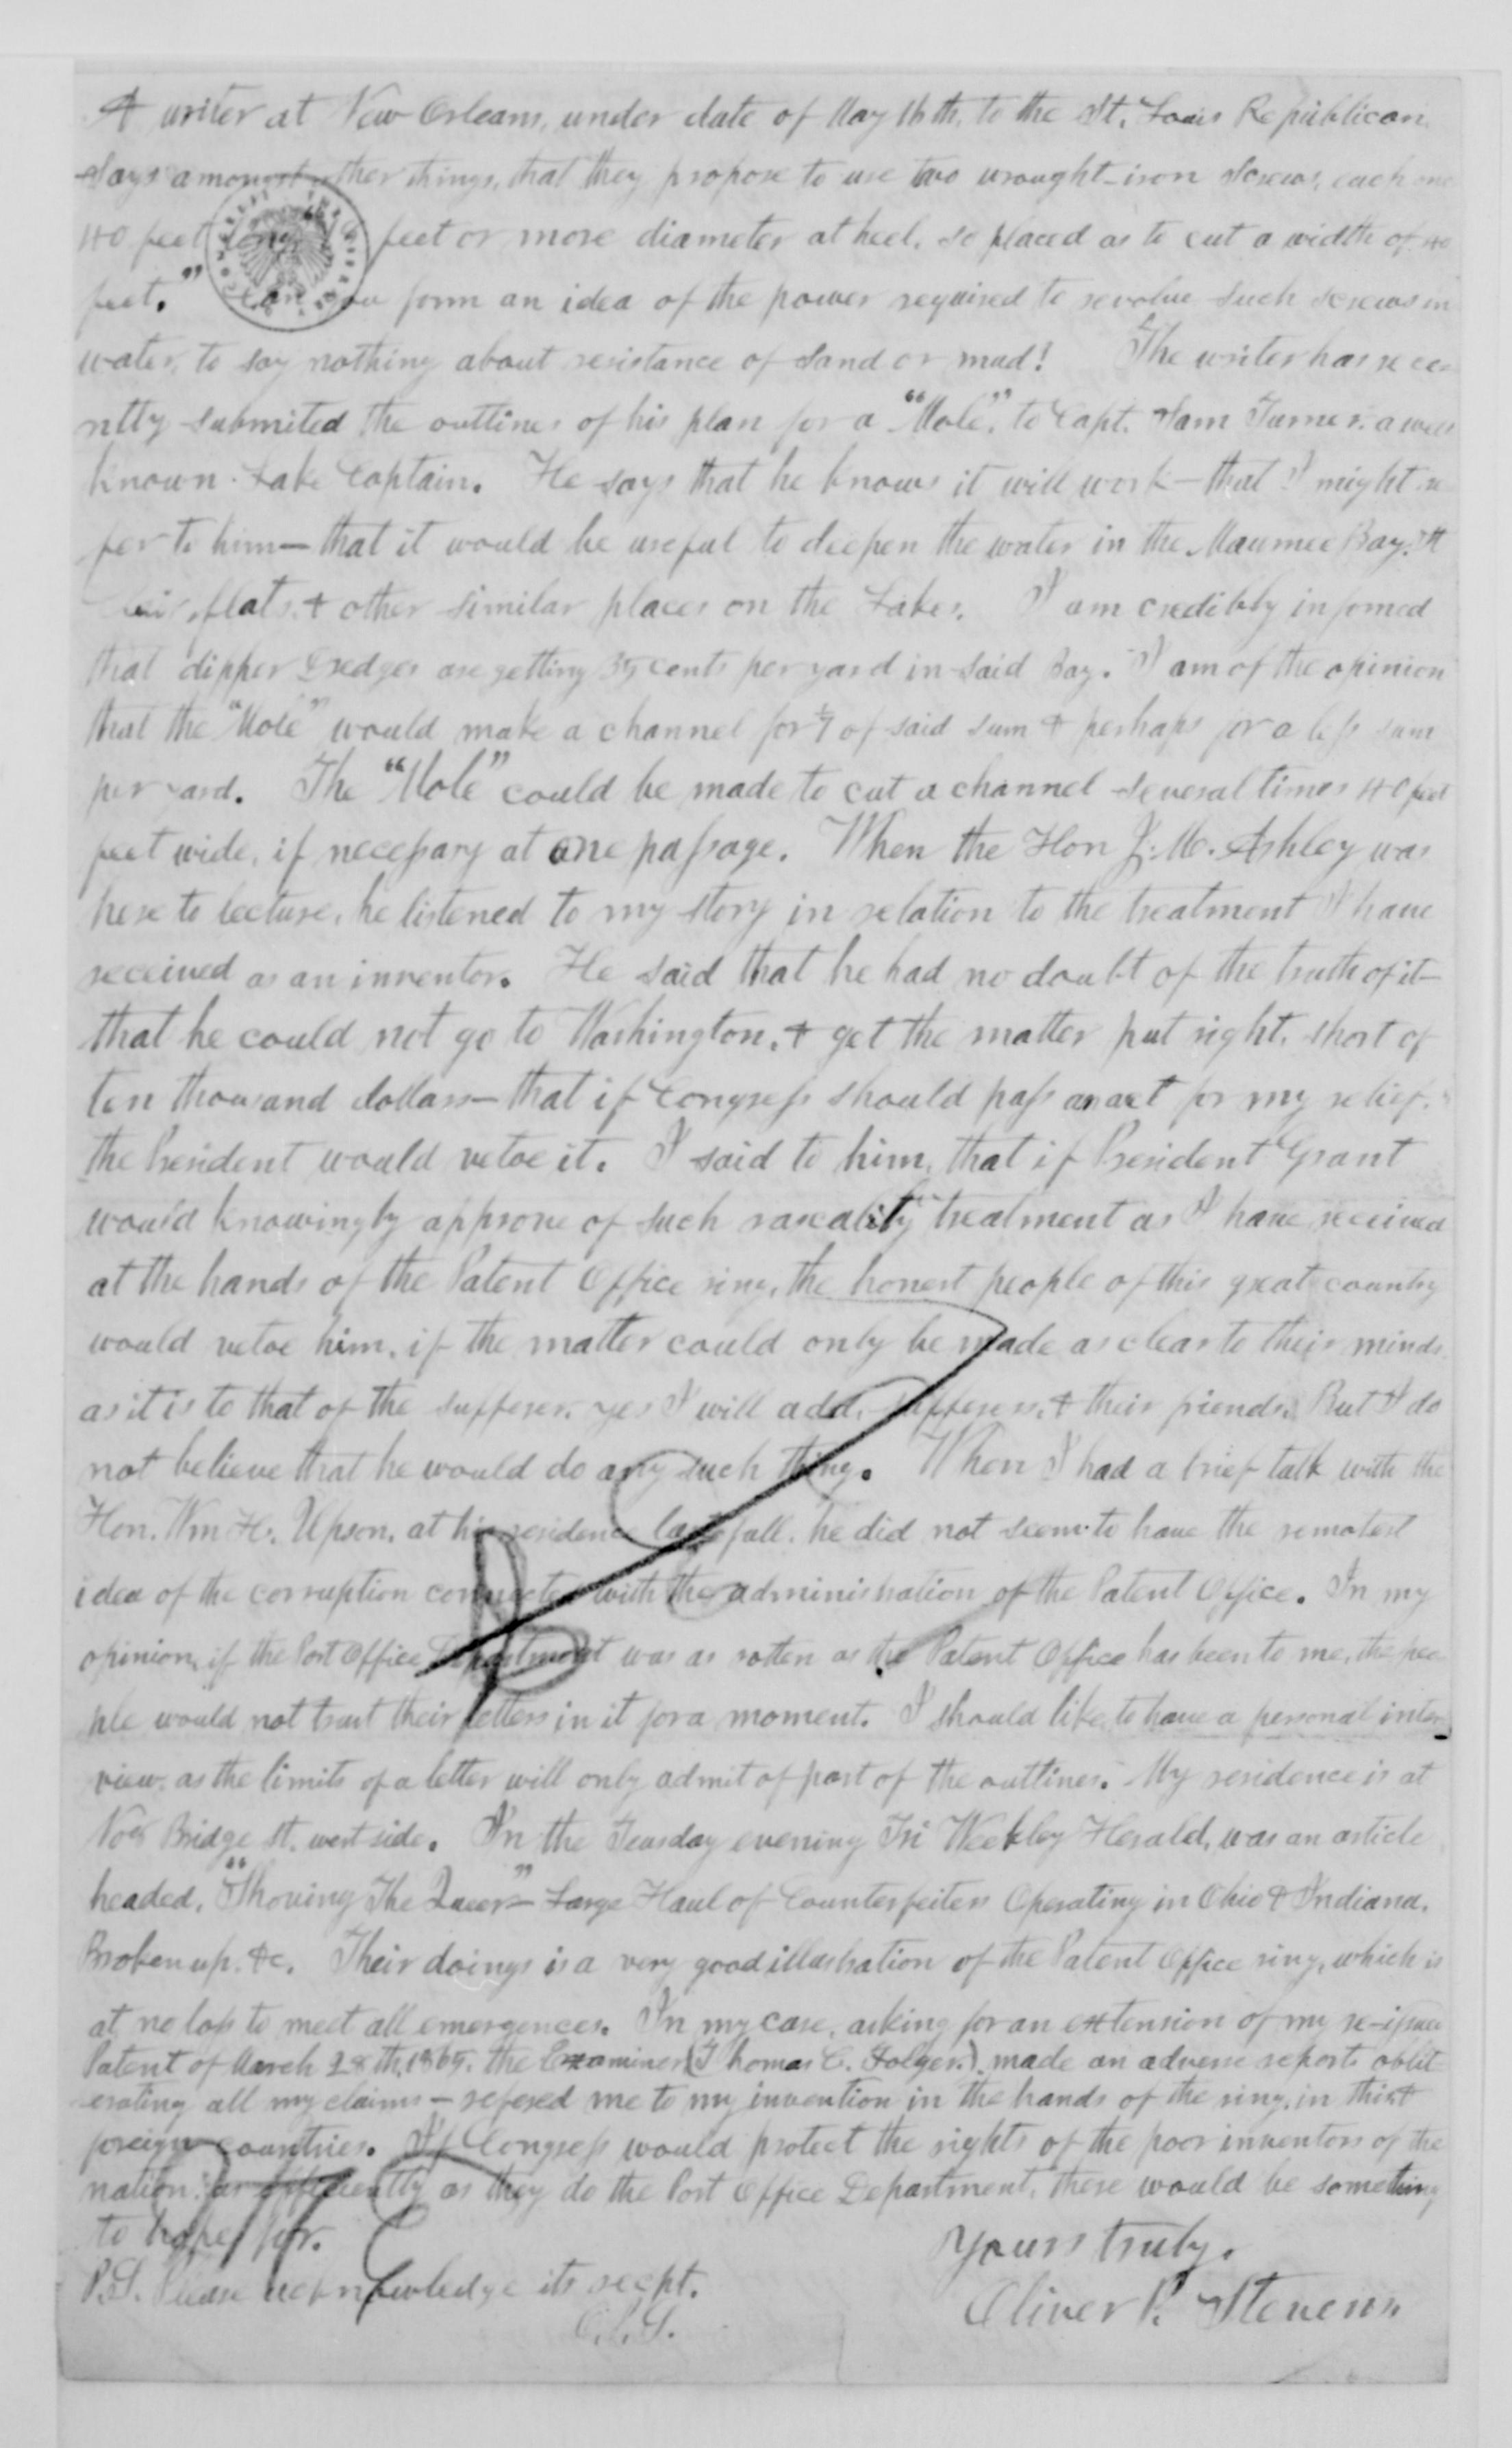 A writer at New Orleans, under date of May 16th, to the St. Louis Republican
says amongst other things, that they propose to use two wrought-iron screws, each one
40 feet long, 16 feet or more diameter at heel, so placed as to cut a width of 40
feet." Can you form an idea of the power required to revolve such screws in
water, to say nothing about resistance of sand or mud! The writer has rece-
ntly submited the outlines of his plan for a "Mole", to Capt. Sam Turner, a well
known Lake Captain. He says that he knows it will work — that I might re
fer to him — that it would be useful to deepen the water in the Maumee Bay, St
flats, & other similar places on the Lakes. I am credibly infomed
that dipper dredges are getting 35 cents per yard in said Bay. I am of the opinion
that the "Mole" would make a channel for 1/7 of said sum & perhaps for a less sum
per yard. The "Mole" could be made to cut a channel several times 40 feet
feet wide, if necessary at one passage. When the Hon J. M. Ashley was
here to lecture, he listened to my story in relation to the treatment I have
received as an inventor. He said that he had no doubt of the truth of it —
that he could not go to Washington, & get the matter put right, short of
ten thousand dollars — that if Congress should pass an act for my relief,
the President would vetoe it. I said to him, that if President Grant
would knowingly approve of such rascality treatment as I have received
at the hands of the Patent Office ring, the honest people of this great country
would vetoe him, if the matter could only be made as clear to their minds
as it is to that of the sufferer, yes I will add, sufferers, & their friends. But I do
not believe that he would do any such thing. When I had a brief talk with the
Hon. Wm H. Upson, at his residence last fall, he did not seem to have the remotest
idea of the corruption connected with the administration of the Patent Office. In my
opinion, if the Post Office Department was as rotten as the Patent Office has been to me, the peo
ple would not trust their letters in it for a moment. I should like to have a personal inter-
view, as the limits of a letter will only admit of part of the outlines. My residence is at
No 8 Bridge St. west side. In the Teusday evening Tri Weekley Herald, was an article
headed, "Shoving The Queer" — Large Haul of Counterfeiters Operating in Ohio & Indiana.
Broken up. &c. Their doings is a very good illustration of the Patent Office ring, which is
at no loss to meet all emergences. In my case, asking for an extension of my re-issue
Patent of March 28th, 1865, the Examiner (Thomas C. Folger.) made an adverse report, oblit-
erating all my claims — refered me to my invention in the hands of the ring, in
foreign countries. If Congress would protect the rights of the poor inventors of the
nation, as efficiently as they do the Post Office Department, there would be something
to hope for.
Yours truly,
P.S. Please acknowledge its recpt.
Oliver P. Stevens
O.P.S.